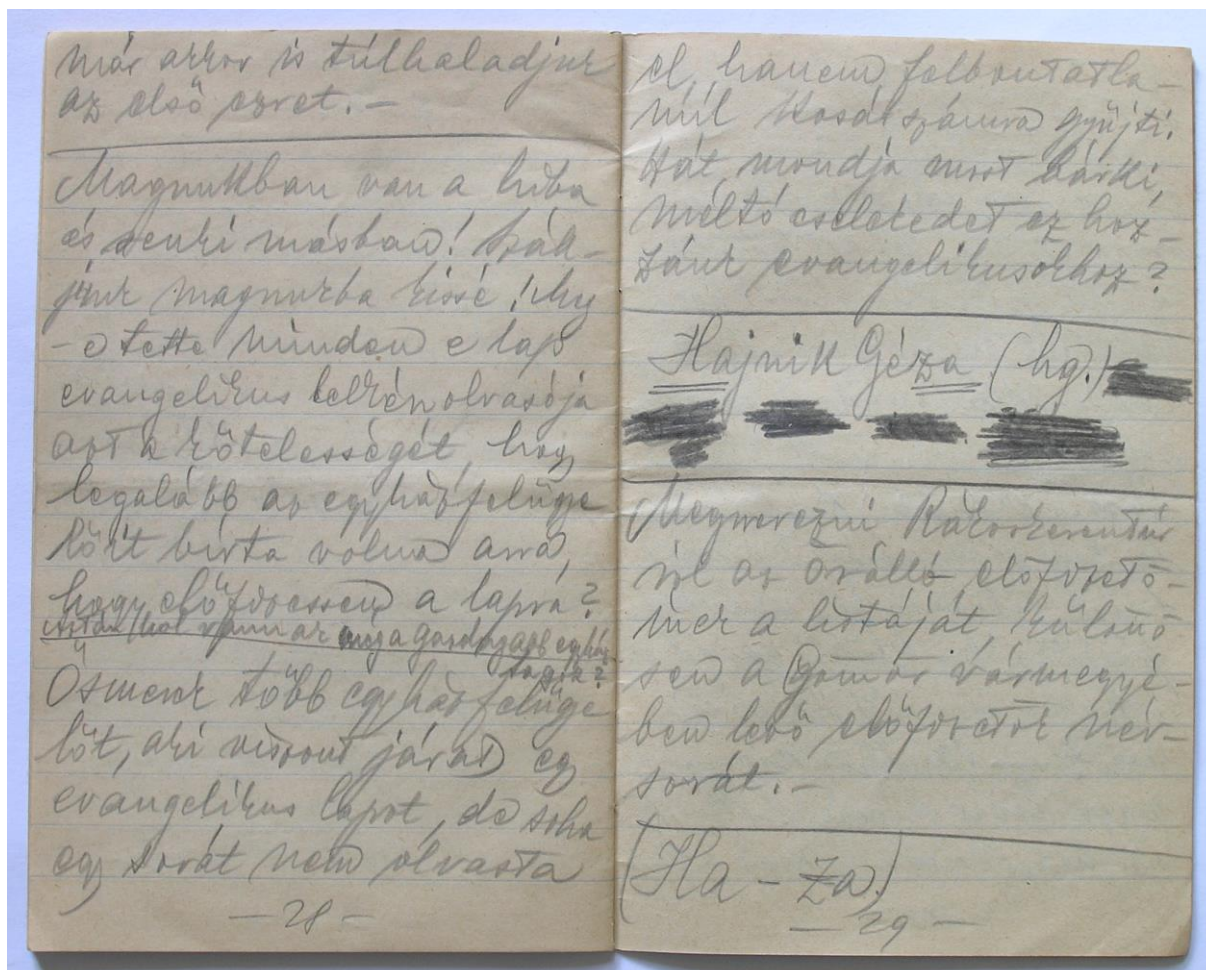 már akkor is túlhaladjuk
az első ezret. –
Magunkban van a hiba
és senki másban! Száll-
junk magunkba kissé! Meg
-e tette minden e lap
evangelikus lelkészolvasója
azt a kötelességét, hogy
legalább az egyházfelügye
lőjét bírta volna arra,
hogy előfizessen a lapra?
Aztán hol vannak még a gazdagabb egyház
tagok?
Ösmerek több egyházfelügye
lőt, aki viszont járat egy
evangelikus lapot, de soha
egy sorát nem olvasta
– 28 –
el, hanem felbontatla-
núl Kosár számra gyűjti.
Hát mondja most bárki,
méltó cselekedet ez hoz-
zánk evangelikusokhoz?
Hajnik Géza (hg.)
Megnerezni Rákoskeresztúr
ról az Őrálló előfizető-
inek a listáját, külonö
sen a Gömör vármegyé-
ben levő előfizetők név-
sorát. –
(Ha - Za)
– 29 –